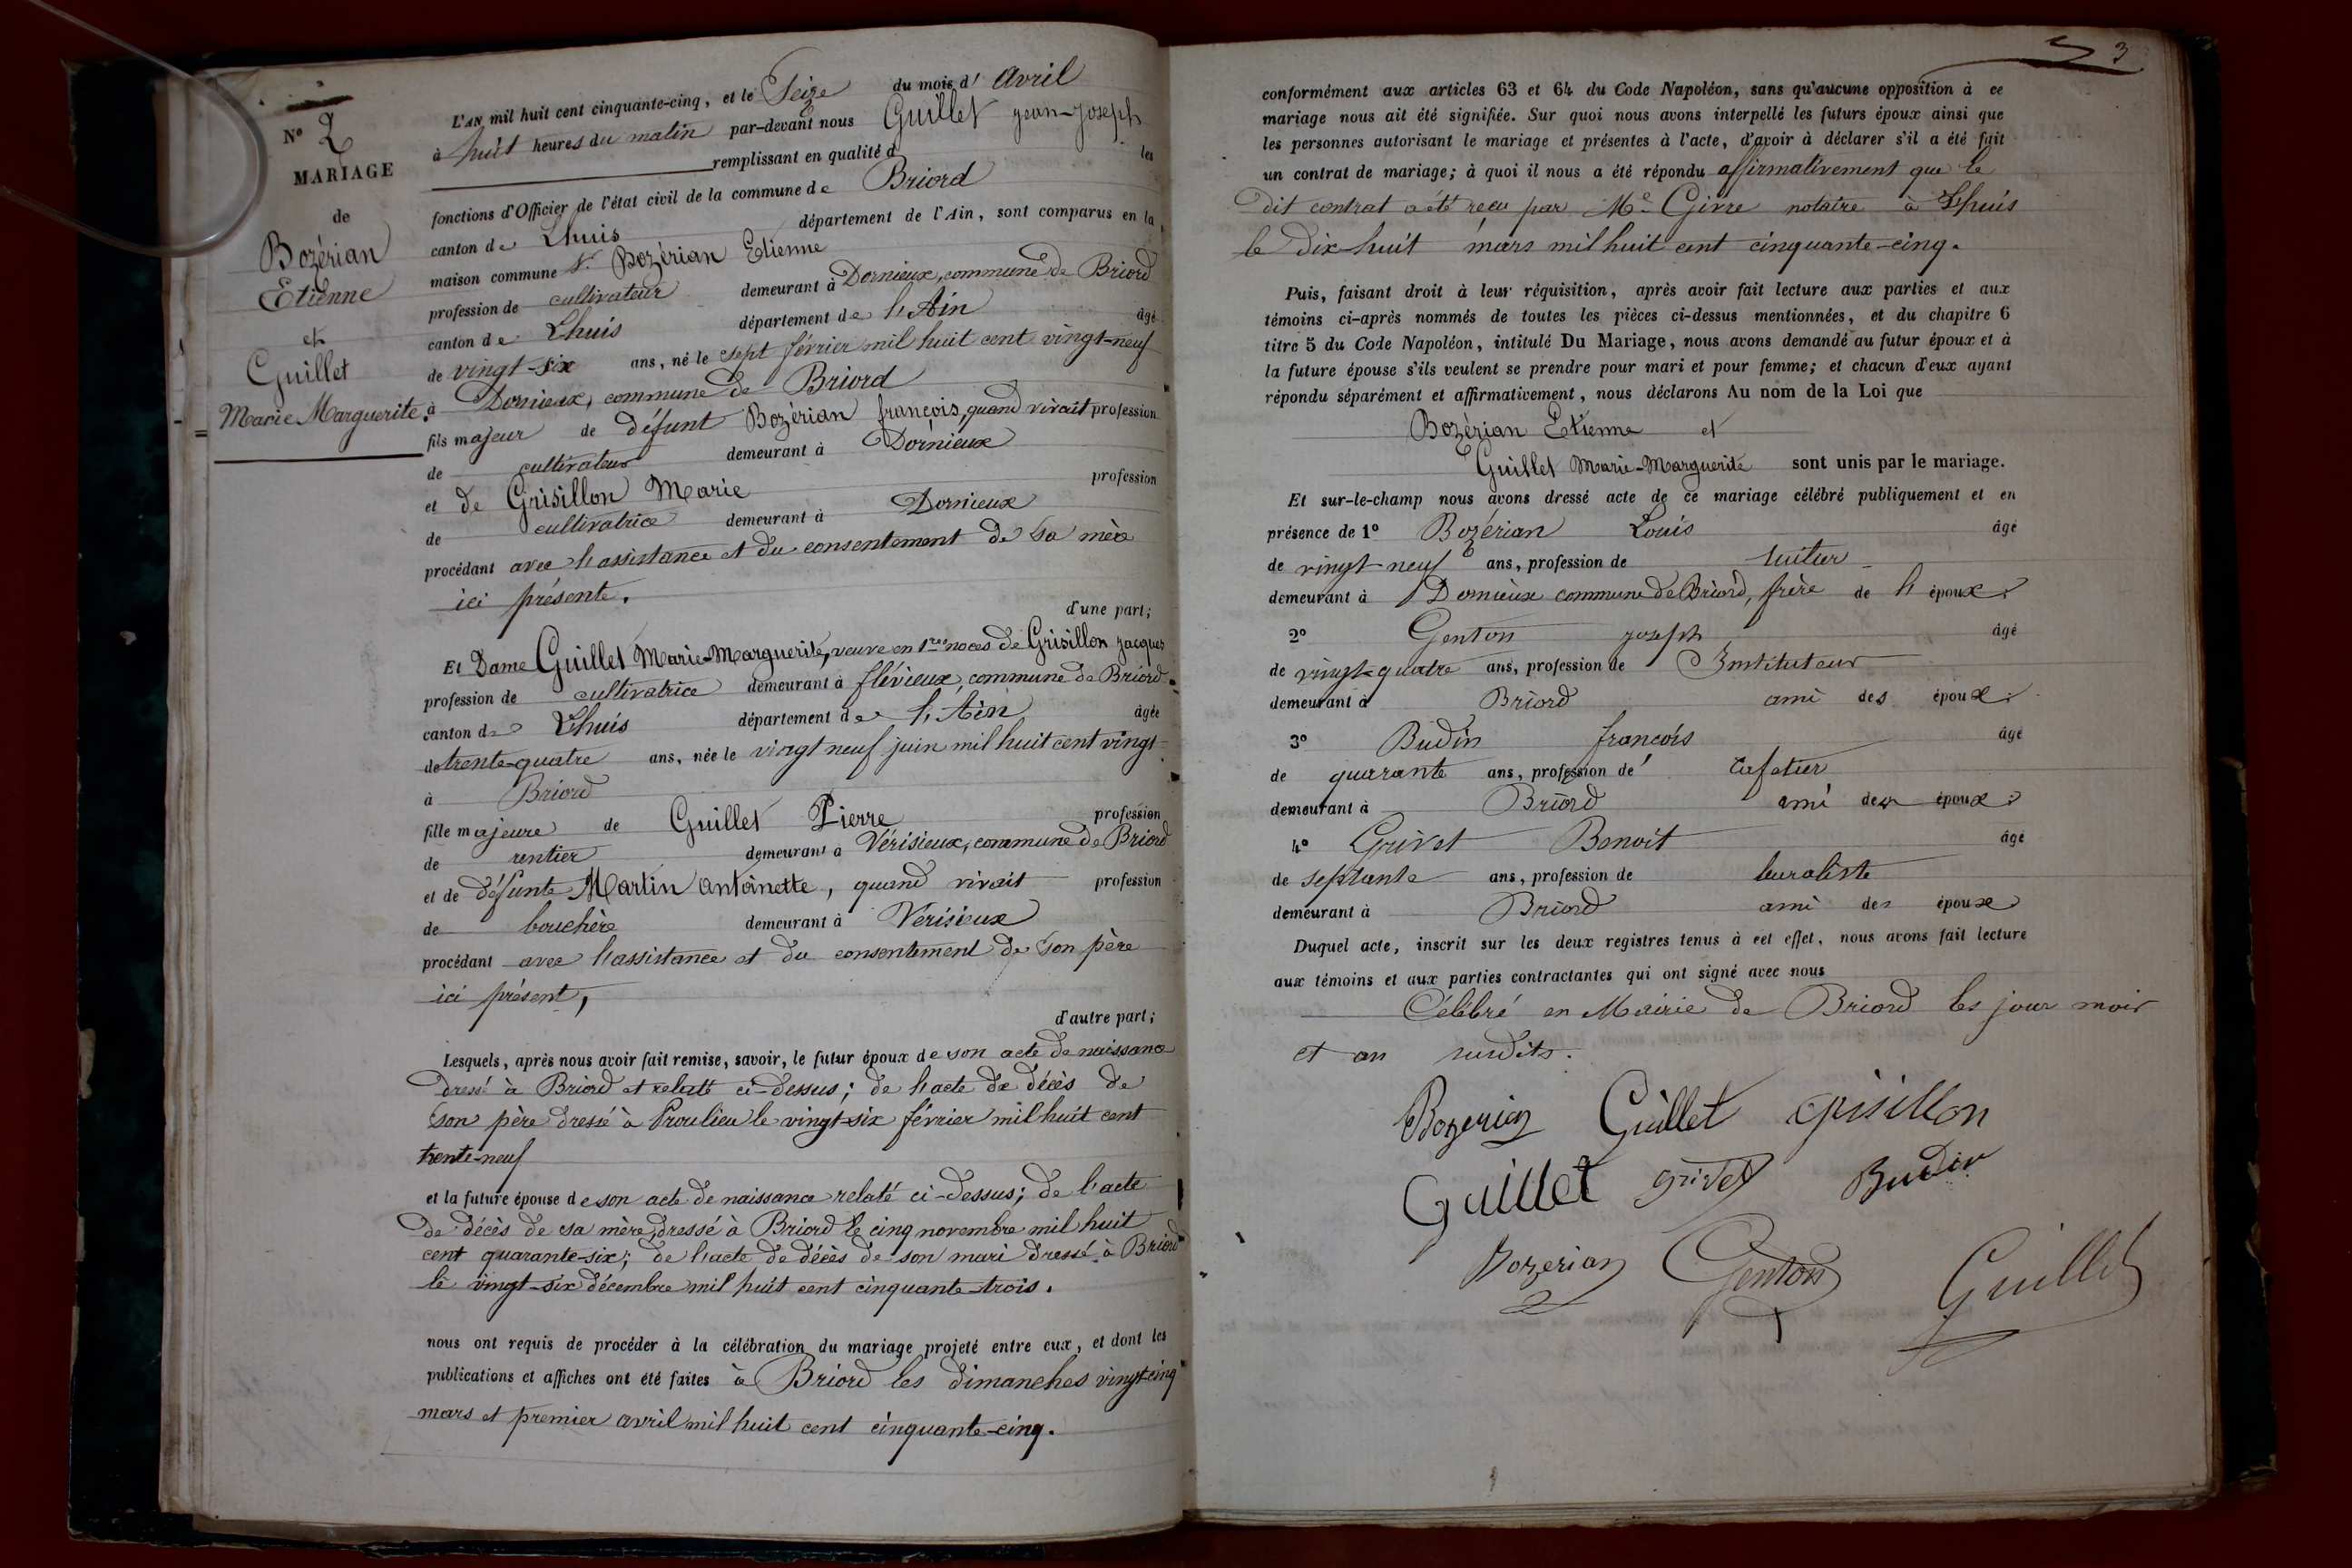 N° 2
MARIAGE
de
Bozérian
Etienne
et
Guillet
Marie Marguerite.
L'AN mil huit cent cinquante-cinq, et le Seize du mois d' avril
à huit heures du matin par-devant nous Guillet jean-joseph
remplissant en qualité d les
fonctions d'Officier de l'état civil de la commune de Briord
canton de Lhuis département de l'Ain, sont comparus en la
maison commune Sr. Bozérian Etienne
profession de cultivateur demeurant à Dornieux, commune de Briord
canton de Lhuis département de l'Ain âgé
de vingt-six ans, né le sept février mil huit cent vingt-neuf
à Dornieux, commune de Briord
fils majeur de défunt Bozérian françois, quand vivait profession
de cultivateur demeurant à Dornieux
et de Grisillon Marie profession
de cultivatrice demeurant à Dornieux
procédant avec l'assistance et du consentement de sa mère
ici présente.
d'une part;
Et Dame Guillet Marie-Marguerite, veuve en 1res noces de Grisillon jacques
profession de cultivatrice demeurant à flévieux, commune de Briord
canton de Lhuis département de l'Ain âgée
de trente-quatre ans, née le vingt neuf juin mil huit cent vingt
à Briord
fille majeure de Guillet Pierre profession
de rentier demeurant à Vérisieux, commune de Briord
et de défunte Martin antoinette, quand vivait profession
de bouchère demeurant à Verisieux
procédant avec l'assistance et du consentement de son père
ici présent,
d'autre part;
Lesquels, après nous avoir fait remise, savoir, le futur époux de son acte de naissance
dressé à Briord et relaté ci-dessus; de l'acte de décès de
son père dressé à Proulieu le vingt-six février mil huit cent
trente-neuf
et la future épouse de son acte de naissance relaté ci-dessus; de l'acte
de décès de sa mère, dressé à Briord le cinq novembre mil huit
cent quarante-six; de l'acte de décès de son mari dressé à Briord
le vingt-six décembre mil huit cent cinquante-trois.
nous ont requis de procéder à la célébration du mariage projeté entre eux, et dont les
publications et affiches ont été faites à Briord les dimanches vingt-cinq
mars et premier avril mil huit cent cinquante-cinq.
3
conformément aux articles 63 et 64 du Code Napoléon, sans qu'aucune opposition à ce
mariage nous ait été signifiée. Sur quoi nous avons interpellé les futurs époux ainsi que
les personnes autorisant le mariage et présentes à l'acte, d'avoir à déclarer s'il a été fait
un contrat de mariage; à quoi il nous a été répondu affirmativement que le
dit contrat a été reçu par Me. Givre notaire à Lhuis
le dix-huit mars mil huit cent cinquante-cinq.
Puis, faisant droit à leur réquisition, après avoir fait lecture aux parties et aux
témoins ci-après nommés de toutes les pièces ci-dessus mentionnées, et du chapitre 6
titre 5 du Code Napoléon, intitulé Du Mariage, nous avons demandé au futur époux et à
la future épouse s'ils veulent se prendre pour mari et pour femme; et chacun d'eux ayant
répondu séparément et affirmativement, nous déclarons Au nom de la Loi que
Bozérian Etienne et
Guillet Marie-Marguerite sont unis par le mariage.
Et sur-le-champ nous avons dressé acte de ce mariage célébré publiquement et en
présence de 1° Bozérian Louis âgé
de vingt-neuf ans, profession de
demeurant à Dornieux commune de Briord, frère de l'époux.
2° Genton joseph âgé
de vingt-quatre ans, profession de Instituteur
demeurant à Briord ami des époux.
3° Budin françois âgé
de quarante ans, profession de cafetier
demeurant à Briord ami des époux.
4° Grivet Benoit âgé
de septante ans, profession de buraliste
demeurant à Briord ami des époux
Duquel acte, inscrit sur les deux registres tenus à cet effet, nous avons fait lecture
aux témoins et aux parties contractantes qui ont signé avec nous
Célébré en Mairie de Briord les jour mois
et an susdits.
Bozerian Guillet Grisillon
Guillet Grivet Budin
Bozerian Genton Guillet